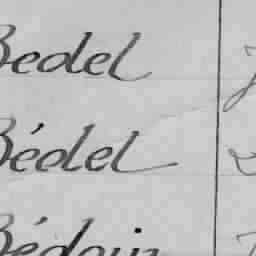 Bedel
Bédel
Bédouin